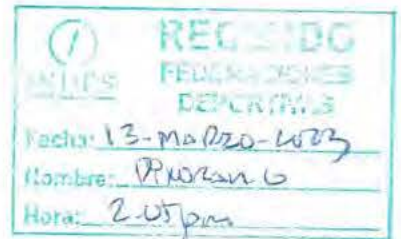 RECIBIDO
INDES
FEDERACIONES
DEPORTIVAS
Fecha: 13-MARZO-2023
Nombre:
Hora: 2.05 pm